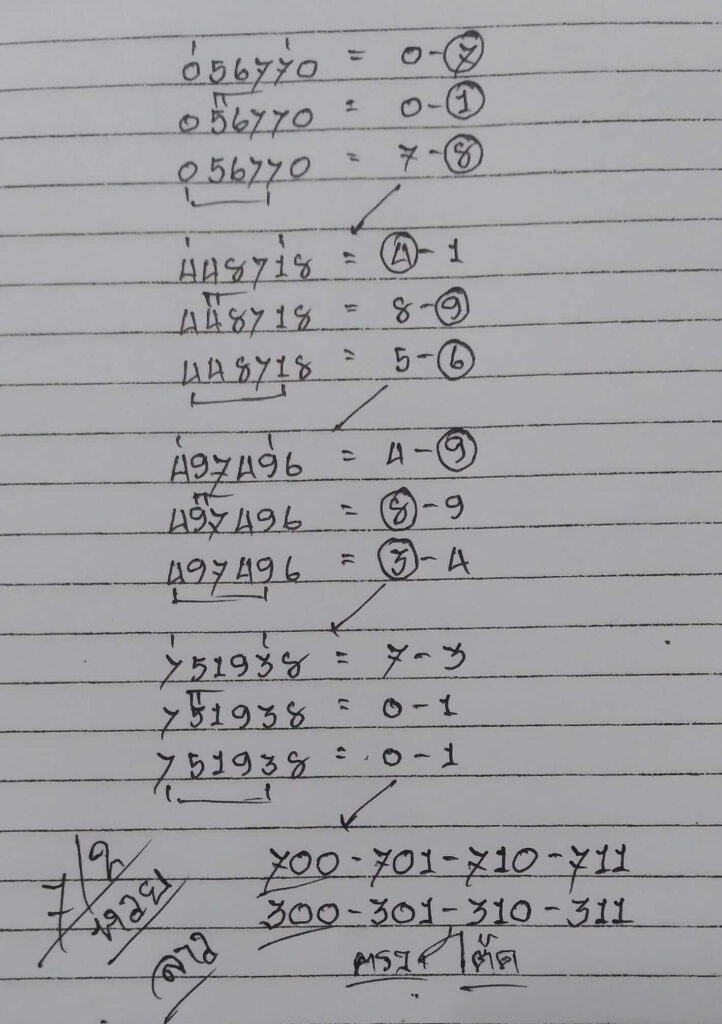 056770 = 0-7
056770 = 0-1
056770 = 7-8
448718 = 4-1
448718 = 8-9
448718 = 5-6
497496 = 4-9
497496 = 8-9
497496 = 3-4
751938 = 7-3
751938 = 0-1
751938 = 0-1
700-701-710-711
300-301-310-311
7
หวย
ลาว
ตรง